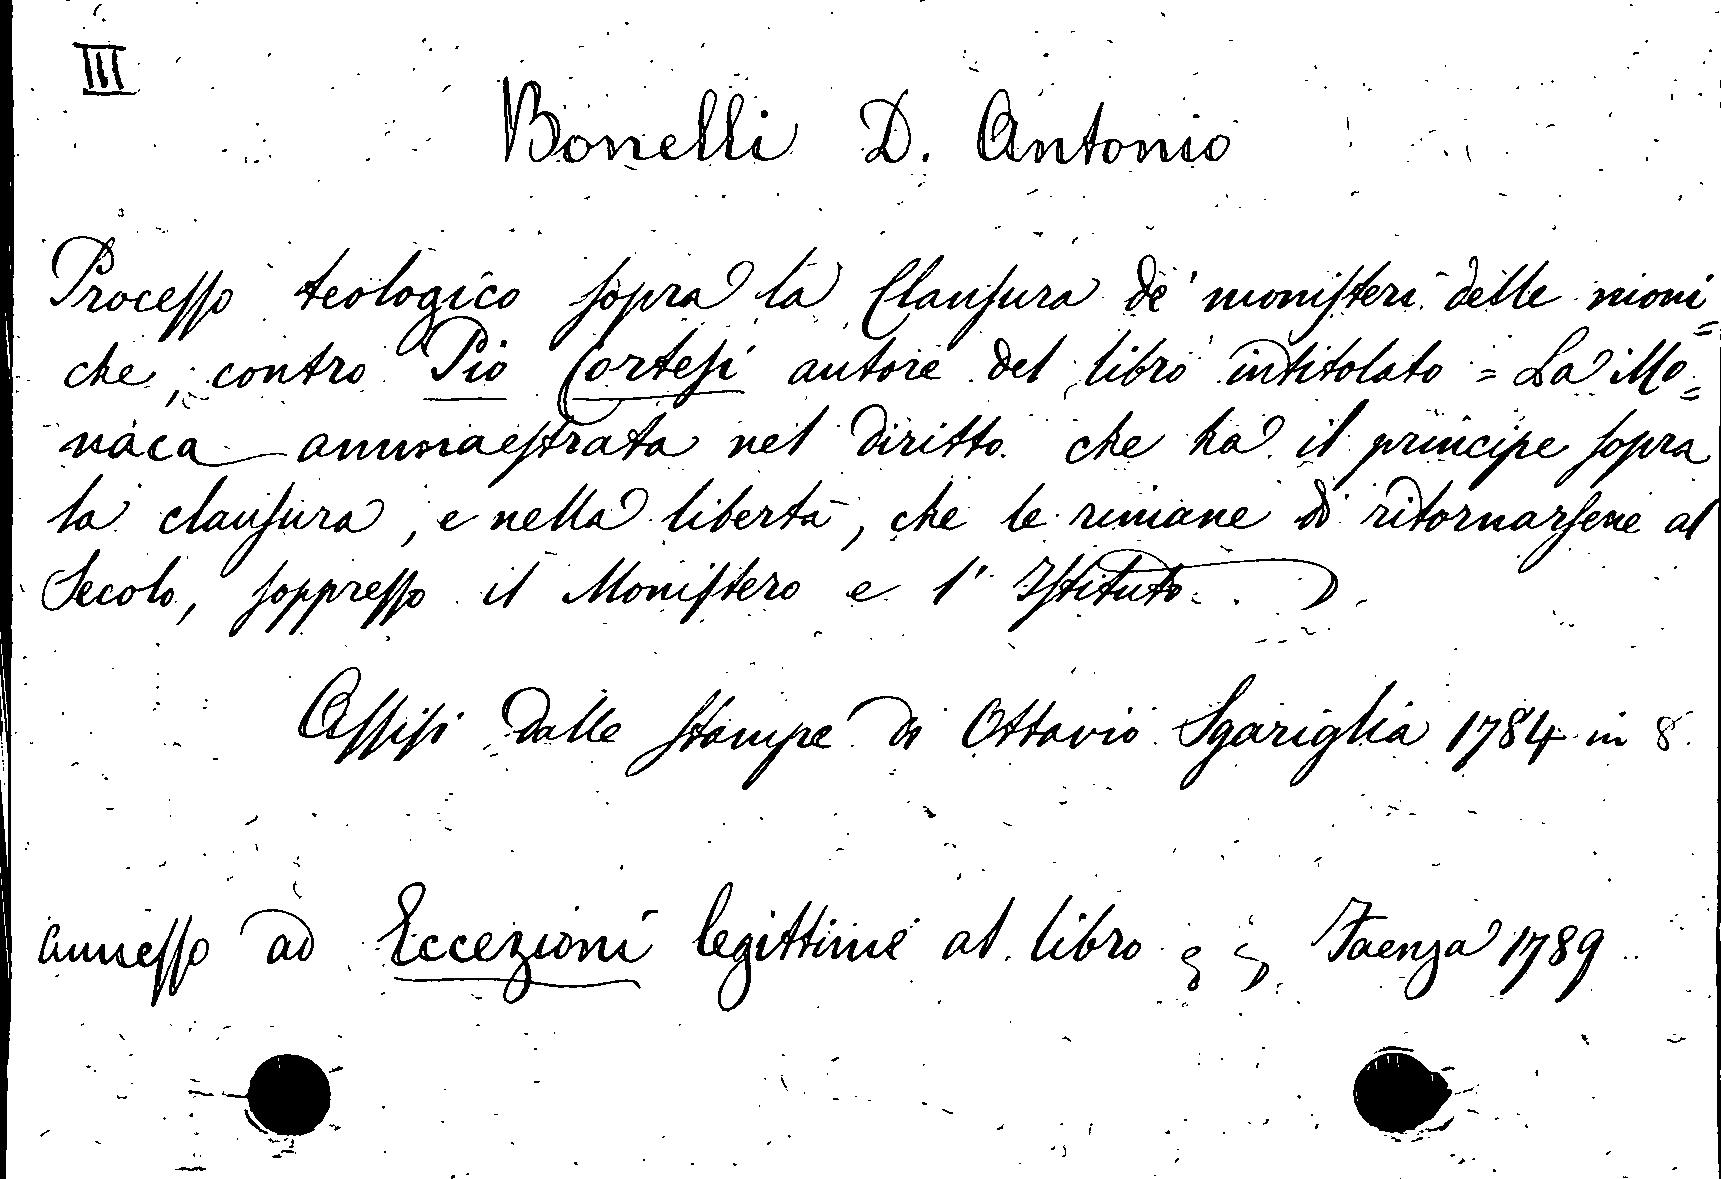 III
Bonelli D. Antonio
Processo teologico sopra la Clausura de' monisteri delle moni=
che, contro Pio Cortesi autore del libro intitolato = La Mo=
naca ammaestrata nel diritto che ha il principe sopra
la clausura, e nella libertà, che le rimane di ritornarsene al
Secolo, soppresso il Monistero e l'Istituto.
Assisi dalle stampe di Ottavio Sgariglia 1784 in 8.
annesso ad Eccezioni legittime al libro Faenza 1789